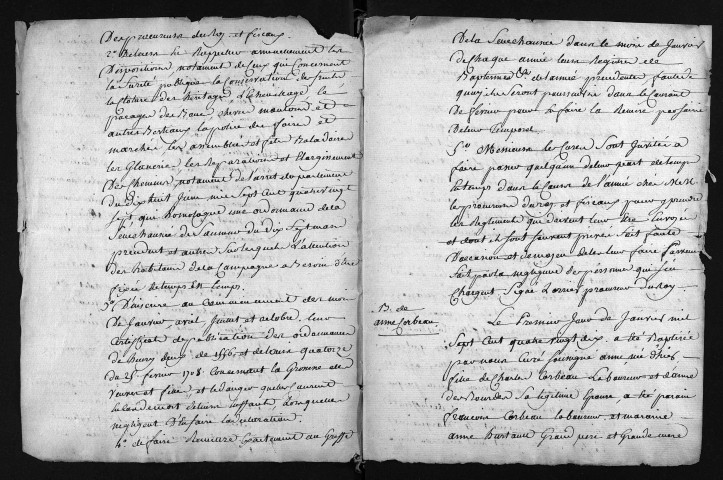 Des procureurs du Roy et fiscaux.
2° De leurs le Rappeller annuellement les
Dispositions notament de ceux qui concernent
la sureté publique la Conservation des fruits
la Cloture des heritages l'Echenillage le
parcage des Beufs chevres moutons et
autres Bestiaux la police des foires et
marchés les assemblées et fetes Baladoires
les Glaneries les Reparations et Elargissement
Des Chemins, notament de l'arret du parlement
du dix huit Juin mil sept cent quatre vingt
sept qui homologue une ordonnance de la
Senechaussée de Saumur du Dix sept mars
precedent et autres sur lesquels l'attention
des habitans de la Campagne a Besoin d'être
fixée de temps en temps.
3° D'inscrire au Commencement des mois
De Janvier, avril, Juillet et octobre, leur
certifficat de publication des ordonnances
de Henry deux de 1556 et de Louis quatorze
du 25 fevrier 1708 Concernant la Grossesse des
veuves et filles, et le danger qu'elles courent
si leurs enfants
negligent d'en faire la declaration.
4° de faire Remettre exactement au Greffe
De la Senechaussée dans le mois de Janvier
de Chaque année leurs Registres de
Baptesmes &a de l'année precedente faute de
quoy ils seront poursuivis dans le Courant
de fevrier pour se faire la Remise par saisie
de leur temporel.
5° Messieurs les Curés sont Invités a
faire passer quelqu'un de leur part de temps
en temps dans le Cours de l'année chez MM.
les procureurs du Roy et fiscaux pour y prendre
les Reglements qui doivent leur être Envoyés
et dont ils sont souvent privés soit faute
D'occasion et de moyen de les leur faire Parvenir
soit par la negligence de personnes qui s'en
Chargent. Signé procureur du Roy.
B. de
anne Corbeau.
Le Premier Jour de Janvier mil
sept Cent quatre vingt dix a été Baptisée
par nous Curé soussigné anne née d'hier
fille de Charles Corbeau Laboureur et d'anne
des Bourdes sa legitime Epouse a été parain
francois Corbeau laboureur et maraine
anne Grand pere et Grande mere